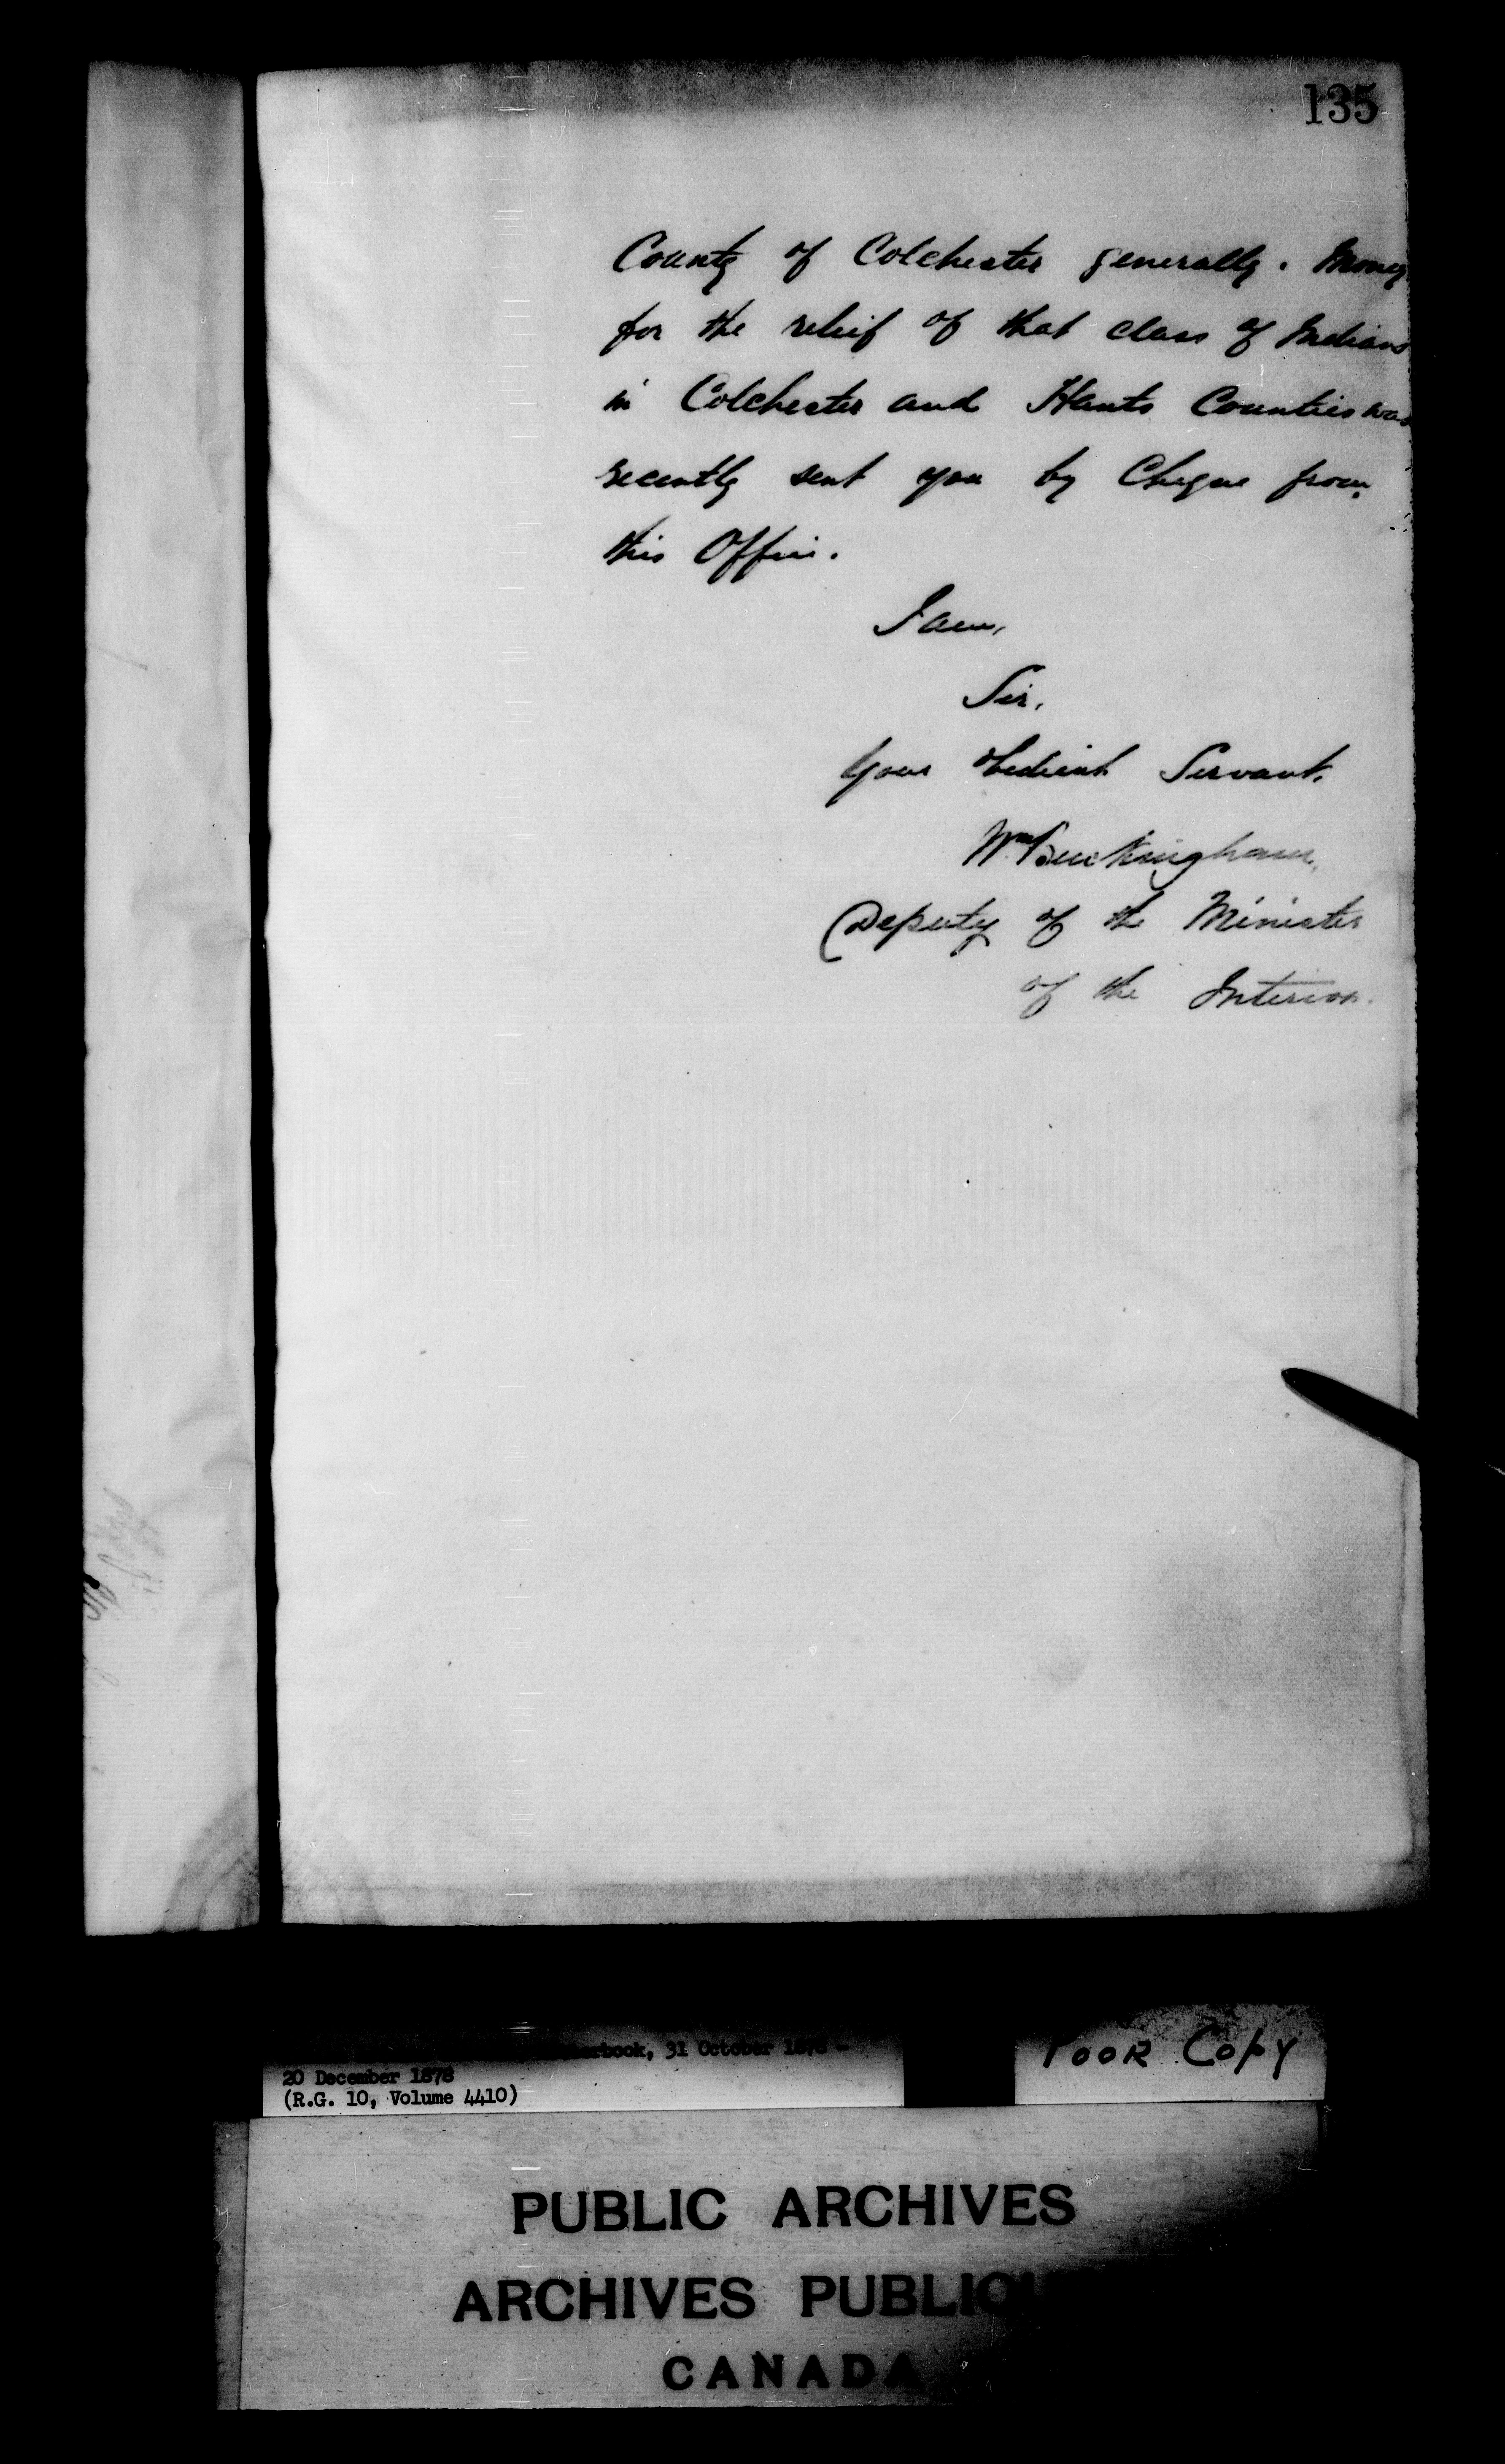 135
County of Colchester generally. Money
for the relief of that class of Indians
in Colchester and Hants Counties was
recently sent you by Cheque from
this Office.
I am,
Sir,
Your obedient Servant,
Wm Buckingham,
Deputy of the Minister
of the Interior.
terbook, 31 October 1878 -
20 December 1878
(R.G. 10, Volume 4410)
POOR COPY
PUBLIC ARCHIVES
ARCHIVES PUBLIQU
CANADA